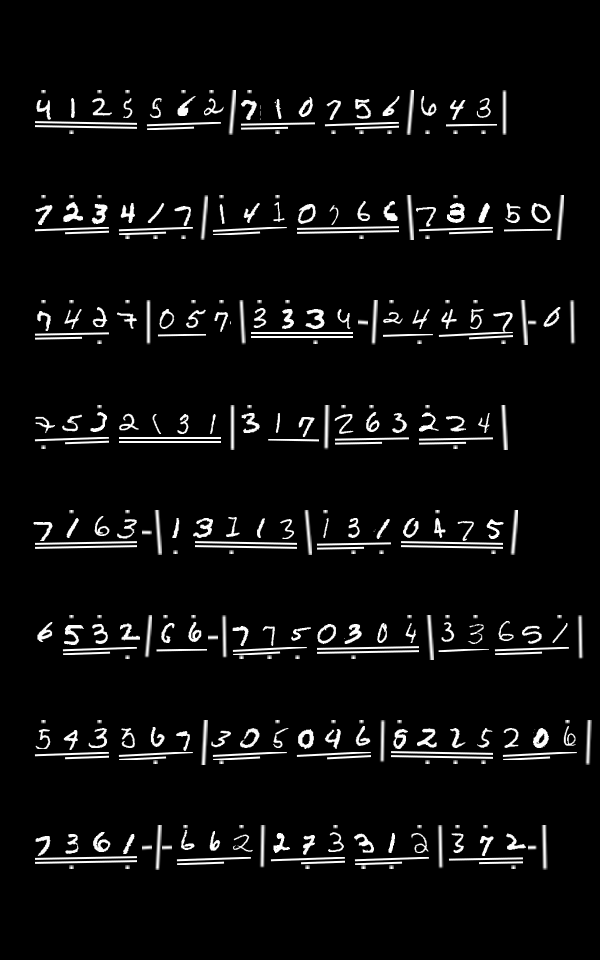 4125 562|710756|643
723417 14100766|73150
7427|057|3334-|24457-0|
7532131|317|263224|
7163-|13113|1310475|
6532|66-|7750304|33657|
543367|305046|5225206|
7361-|-662|273312|372-|